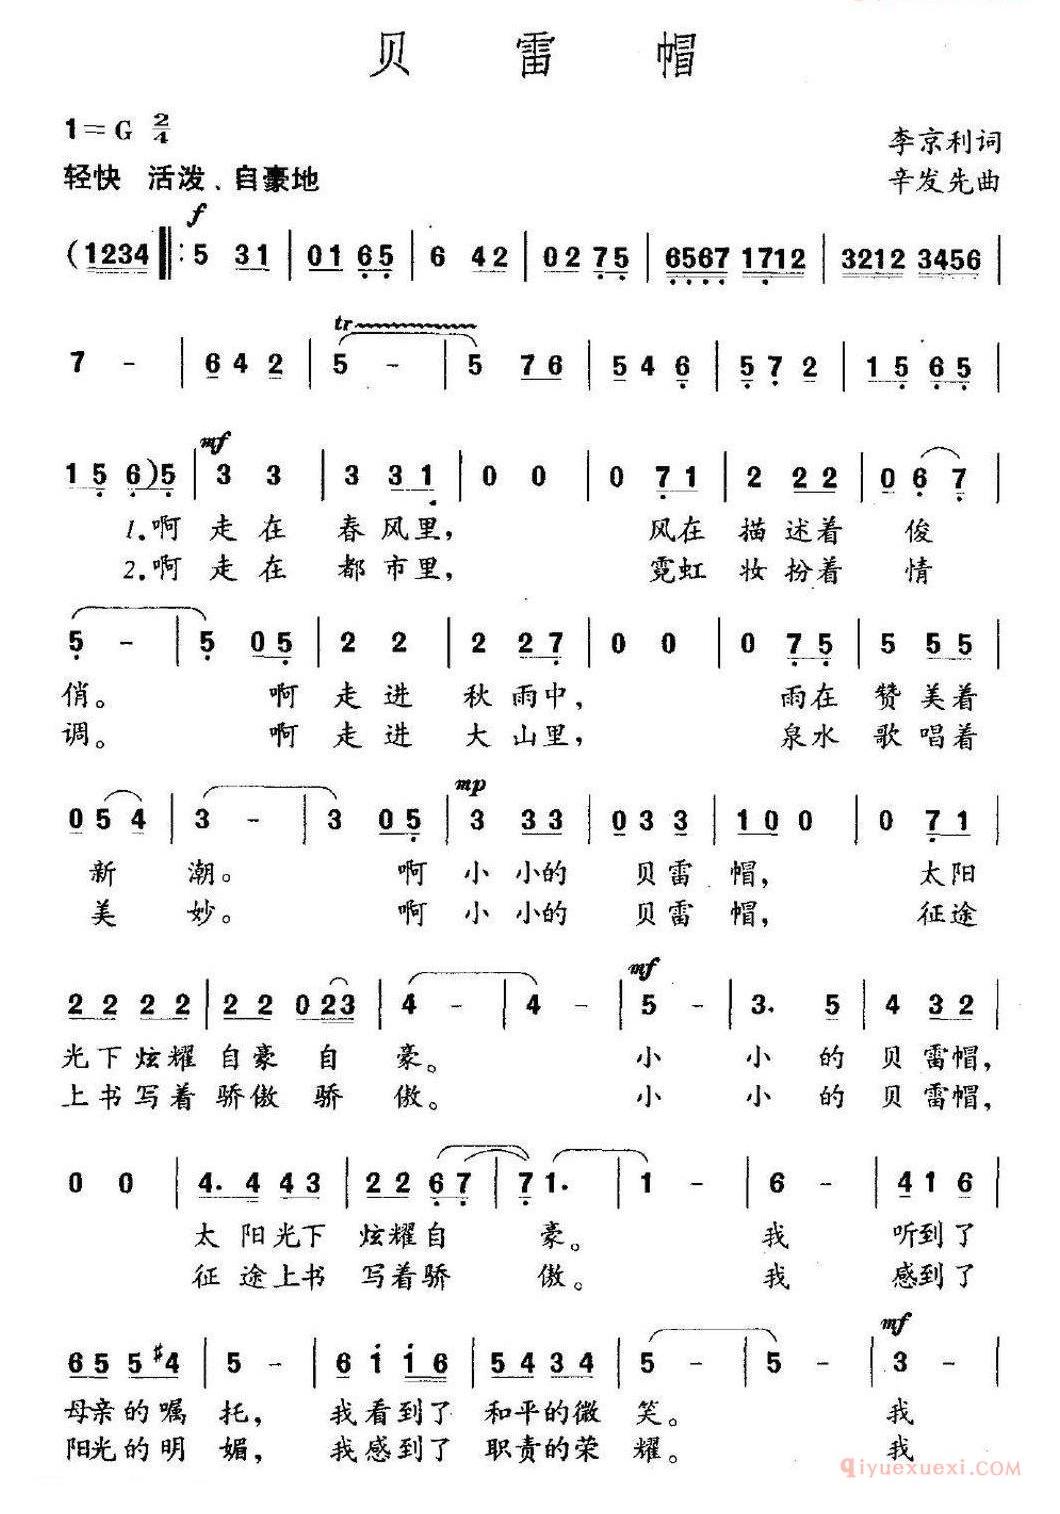 贝 雷 帽
1=G 2/4
李京利词
轻快 活泼、自豪地
辛发先曲
f
(1234 ‖: 5 31 | 01 65 | 6 42 | 02 75 | 6567 1712 | 3212 3456 |
tr
7 - | 6 4 2 | 5 - | 5 76 | 5 4 6 | 5 7 2 | 15 65 |
mf
15 6)5 | 3 3 | 3 31 | 0 0 | 0 71 | 2 22 | 0 6 7 |
1.啊 走 在 春 风里, 风在 描 述着 俊
2.啊 走 在 都 市里, 霓虹 妆 扮着 情
5 - | 5 05 | 2 2 | 2 27 | 0 0 | 0 75 | 5 55 |
俏。 啊 走 进 秋 雨中, 雨在 赞 美着
调。 啊 走 进 大 山里, 泉水 歌 唱着
mp
0 5 4 | 3 - | 3 05 | 3 33 | 0 3 3 | 10 0 | 0 71 |
新 潮。 啊 小 小的 贝雷 帽, 太阳
美 妙。 啊 小 小的 贝雷 帽, 征途
mf
22 22 | 22 023 | 4 - | 4 - | 5 - | 3. 5 | 4 32 |
光下炫耀 自豪 自 豪。 小 小 的 贝 雷帽,
上书写着 骄傲 骄 傲。 小 小 的 贝 雷帽,
0 0 | 4. 4 43 | 22 67 | 7 1. | 1 - | 6 - | 4 1 6 |
太 阳光下 炫耀自 豪。 我 听到了
征 途上书 写着骄 傲。 我 感到了
mf
65 5#4 | 5 - | 6 1 16 | 54 34 | 5 - | 5 - | 3 - |
母亲的嘱 托, 我看到了 和平的微 笑。 我
阳光的明 媚, 我感到了 职责的荣 耀。 我
qiyuexuexi.COM